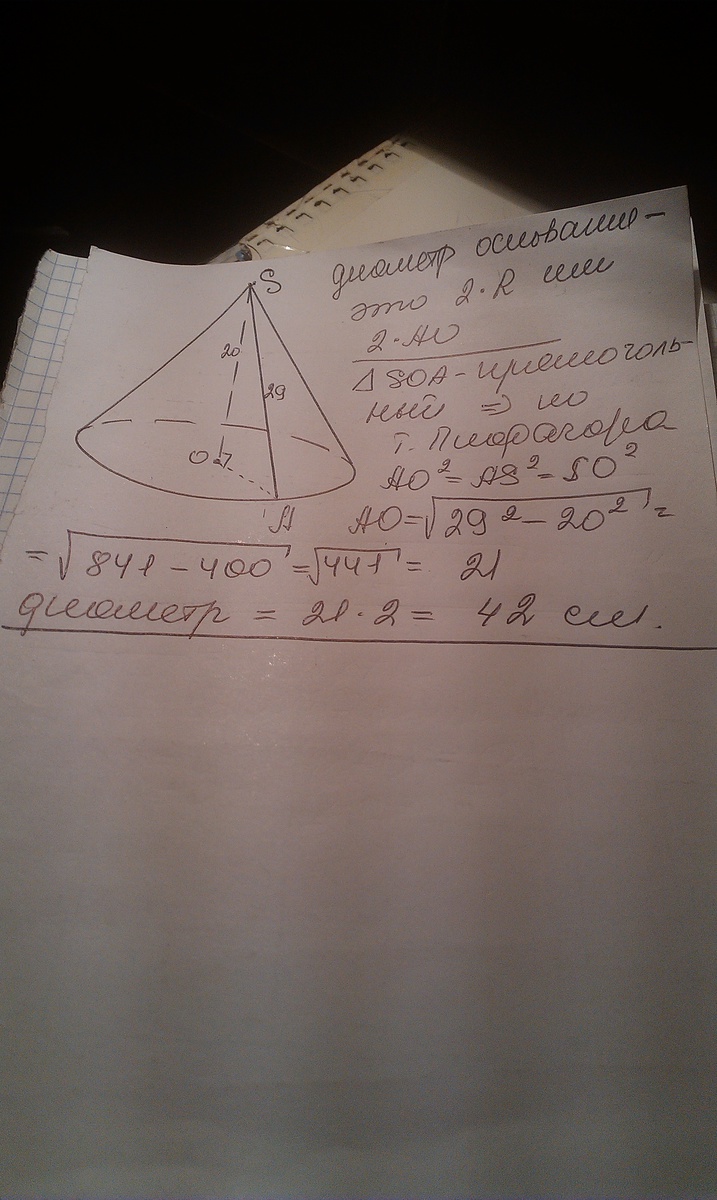 S
20
29
O
A
диаметр основания -
это 2·R или
2·AO
△ SOA - прямоуголь-
ный ⇒ по
т. Пифагора
AO² = AS² = SO²
AO = √29² - 20² =
= √841 - 400 = √441 = 21
диаметр = 21·2 = 42 см.